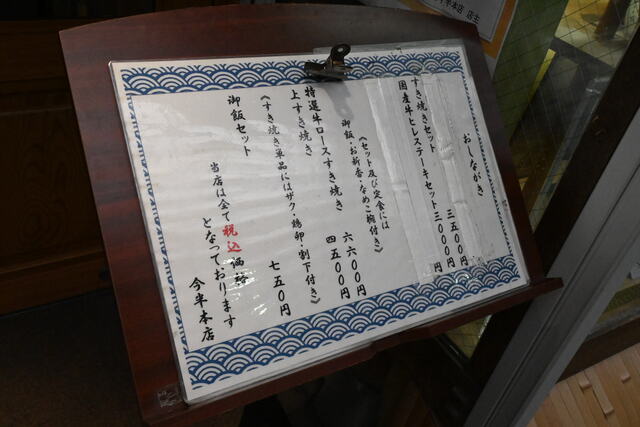 本店 店主
おしながき
すき焼きセット 三五〇〇円
国産牛ヒレステーキセット 三〇〇〇円
(セット及び定食には
御飯・お新香・なめこ椀付き)
特選牛ロースすき焼き 六六〇〇円
上すき焼き 四五〇〇円
(すき焼き単品にはザク・鶏卵・割下付き)
御飯セット 七五〇円
当店は全て税込価格
となっております
今半本店